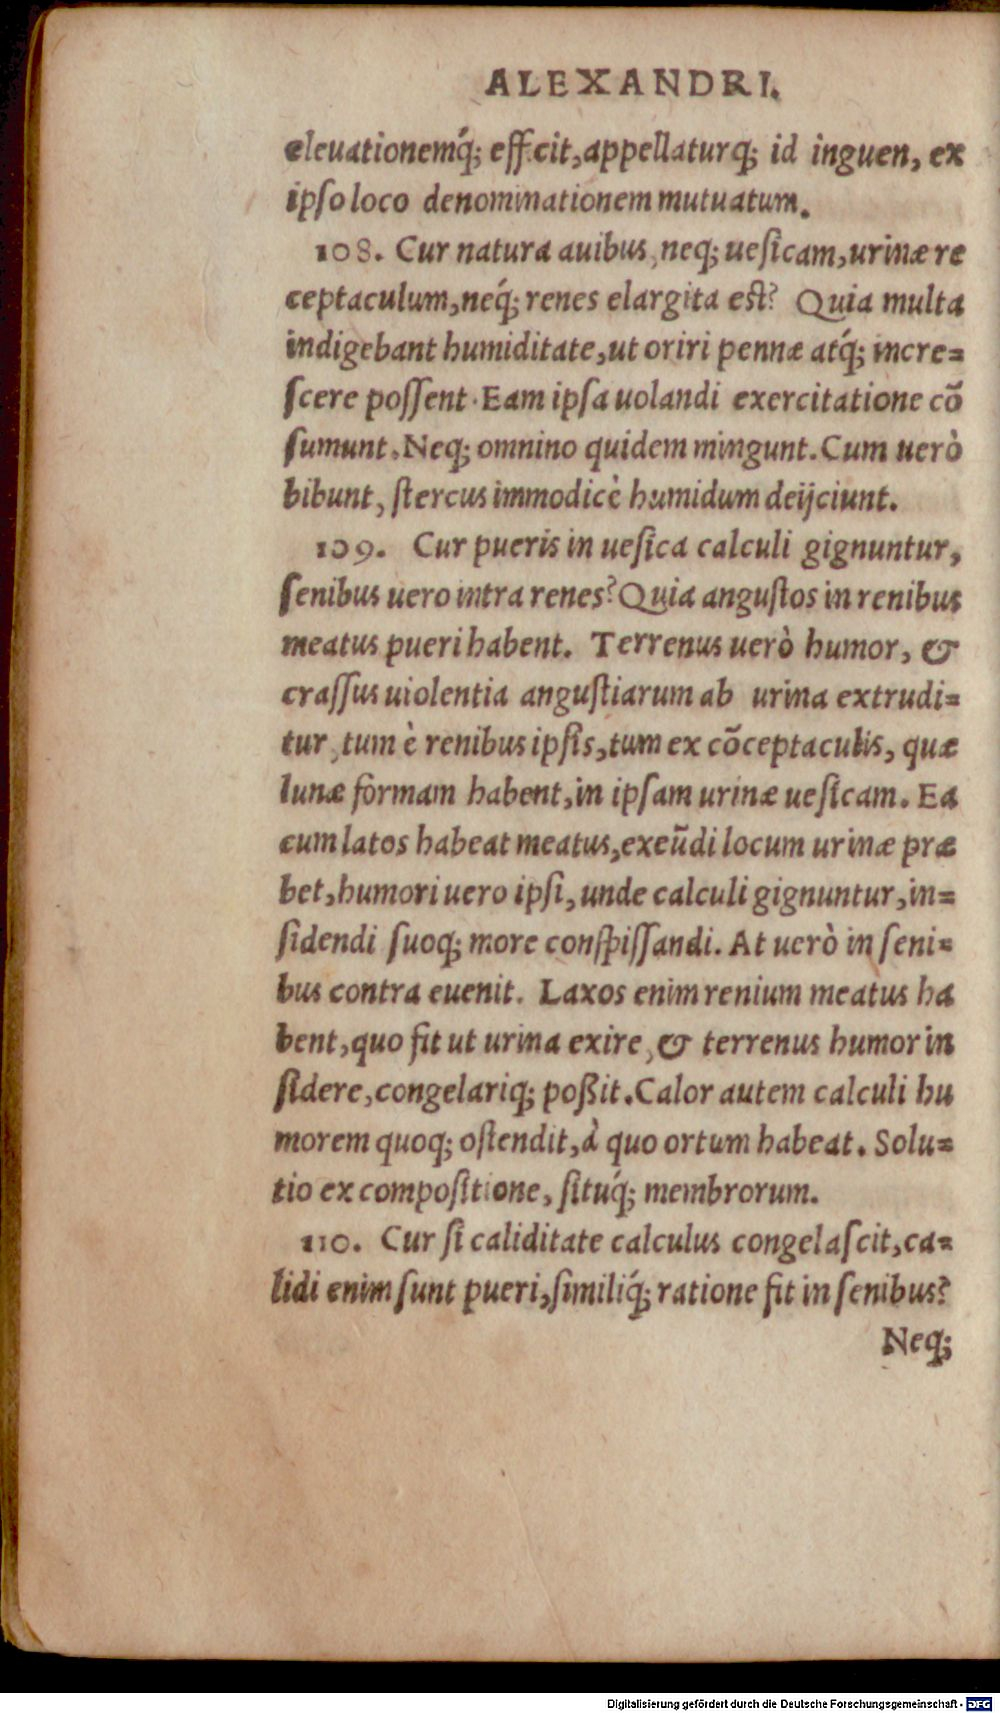 ALEXANDRI.
eleuationemq́; efficit, appellaturq; id inguen, ex
ipso loco denominationem mutuatum.
108. Cur natura auibus, neq; uesicam, urinæ re
ceptaculum, neq́; renes elargita est? Quia multa
indigebant humiditate, ut oriri pennæ atq́; incre=
scere possent. Eam ipsa uolandi exercitatione cō
sumunt. Neq; omnino quidem mingunt. Cum uerò
bibunt, stercus immodicè humidum deijciunt.
109. Cur pueris in uesica calculi gignuntur,
senibus uero intra renes? Quia angustos in renibus
meatus pueri habent. Terrenus uerò humor, &
crassus uiolentia angustiarum ab urina extrudi=
tur, tum è renibus ipsis, tum ex cōceptaculis, quæ
lunæ formam habent, in ipsam urinæ uesicam. Ea
cum latos habeat meatus, exeūdi locum urinæ præ
bet, humori uero ipsi, unde calculi gignuntur, in=
sidendi suoq; more conspissandi. At uerò in seni=
bus contra euenit. Laxos enim renium meatus ha
bent, quo fit ut urina exire, & terrenus humor in
sidere, congelariq; poßit. Calor autem calculi hu
morem quoq; ostendit, à quo ortum habeat. Solu=
tio ex compositione, situq́; membrorum.
110. Cur si caliditate calculus congelascit, ca=
lidi enim sunt pueri, similiq́; ratione fit in senibus?
Neq;
Digitalisierung gefördert durch die Deutsche Forschungsgemeinschaft - DFG